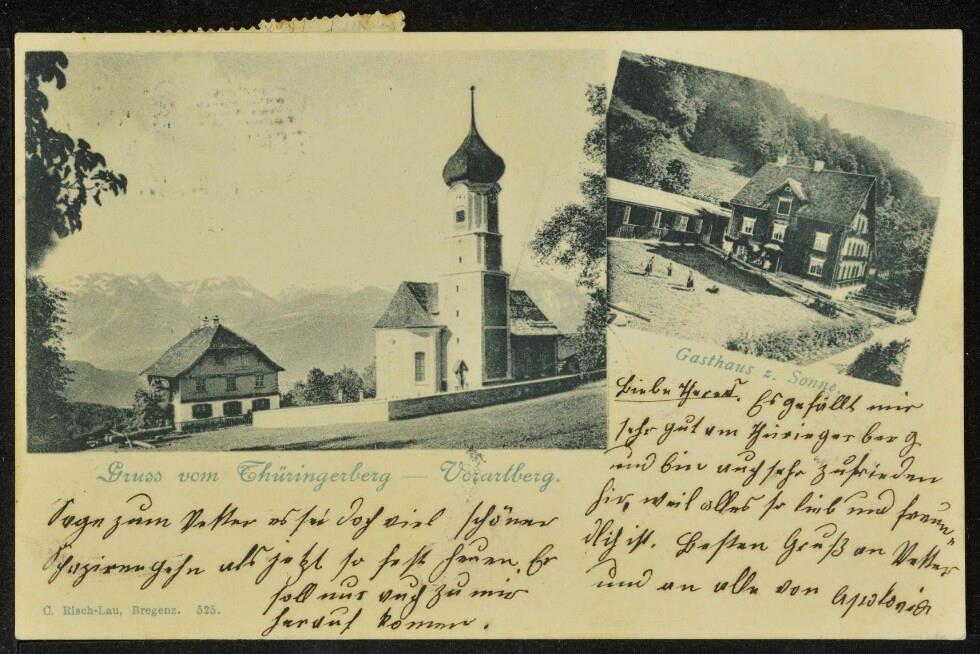 Gasthaus z. Sonne.
Gruss vom Thüringerberg — Vorarlberg.
Liebe Theres. Es gefällt mir
sehr gut am Thüringerberg
und bin auch sehr zufrieden
hir, weil alles so lieb und freun-
dlich ist. Besten Gruß an Vetter
und an alle von Apolonia
Sage zum Vetter es sei doch viel schöner
Spazirengehn als jetzt so fest heuen. Er
soll nur auch zu mir
herauf komen.
C. Risch-Lau, Bregenz. 525.